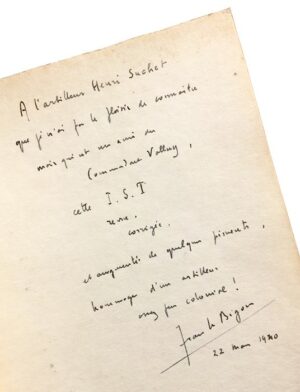 A l'artilleur Henri Suchet
que je n'ai pas le plaisir de connaître
mais qui est un ami du
Commandant Valluy,
cette I.S.T
revue,
corrigée,
et augmentée de quelques piments,
hommage d'un artilleur
assez peu colonial !
Jean le Bigor
22 mars 1940